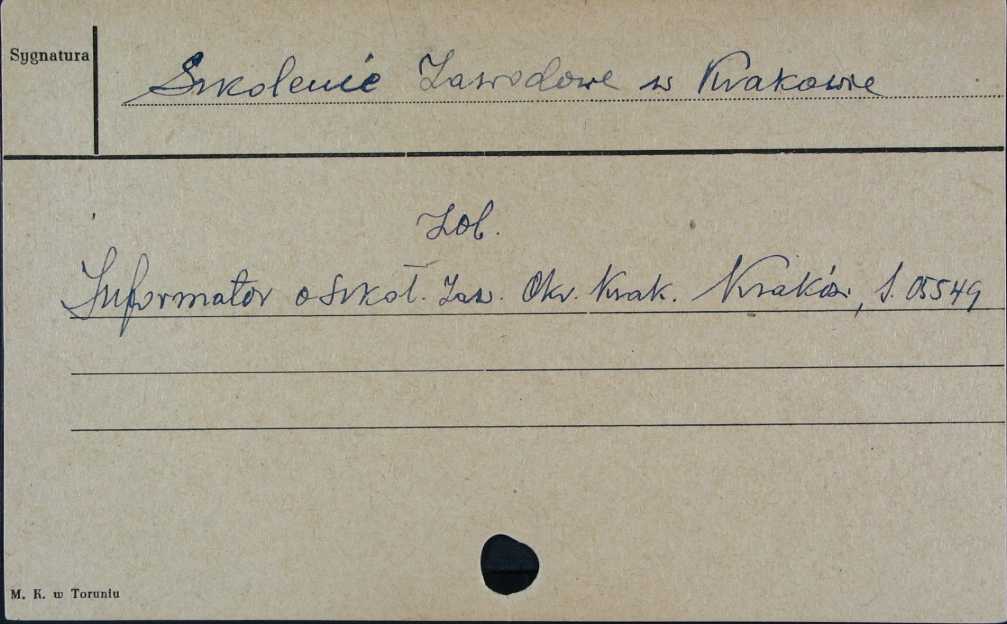 Sygnatura
Szkolenie Zawodowe w Krakowie
Zob.
Informator o szkol. Zaw. Okr. Krak. Kraków, S. 05549
M. K. w Toruniu